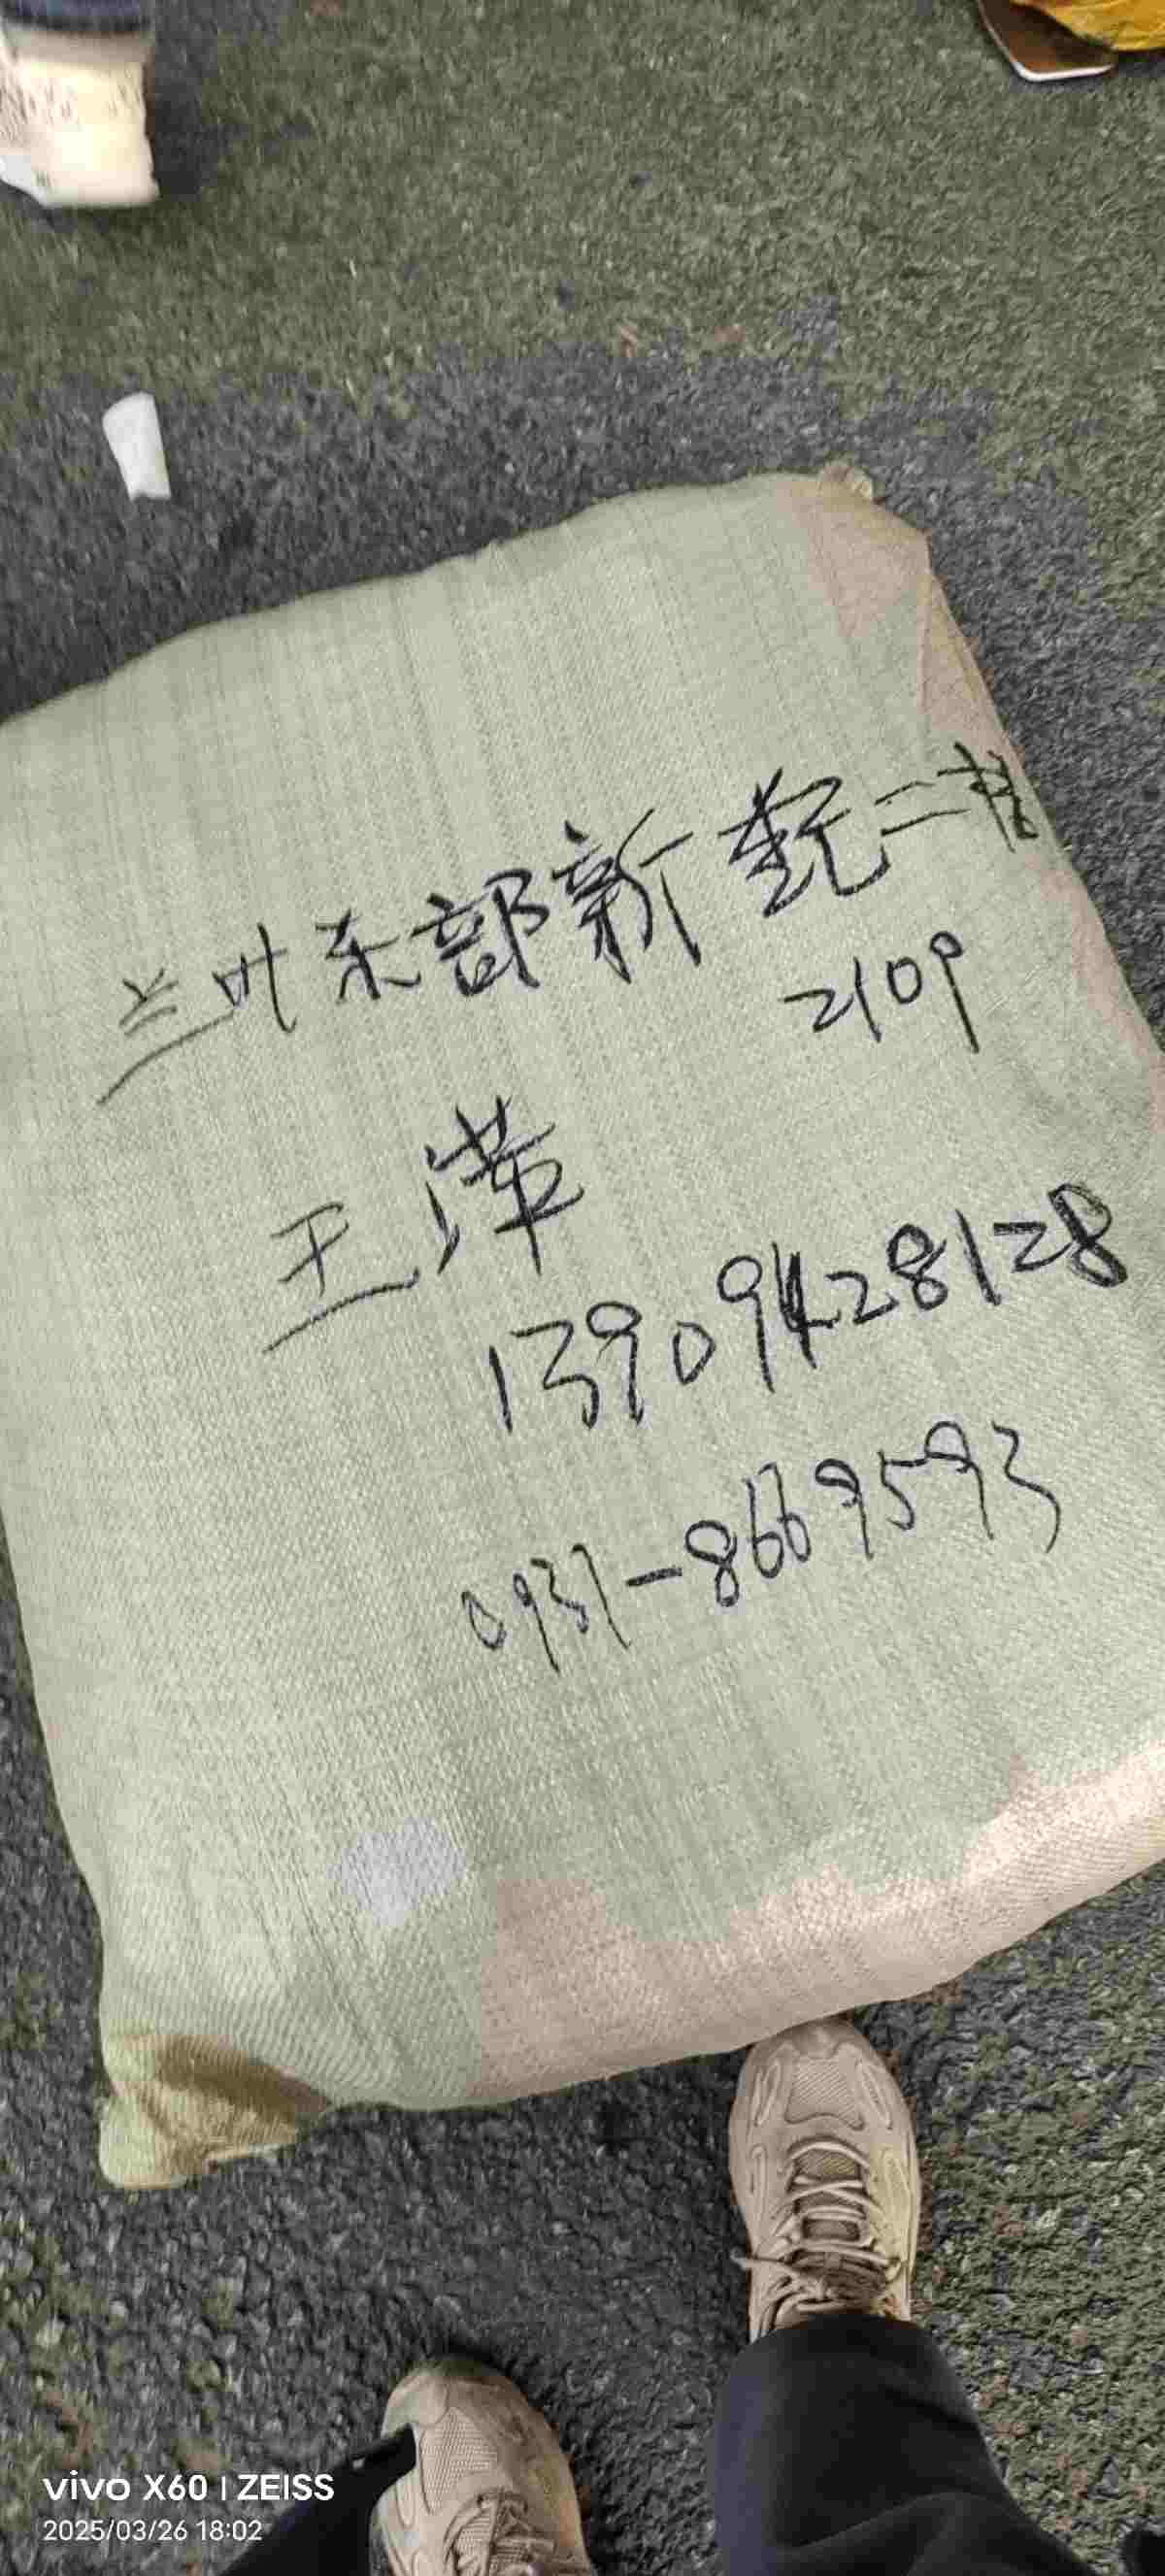 兰州东部新甄二楼
2109
王潆
13909428128
0931-8669593
vivo X60 | ZEISS
2025/03/26 18:02